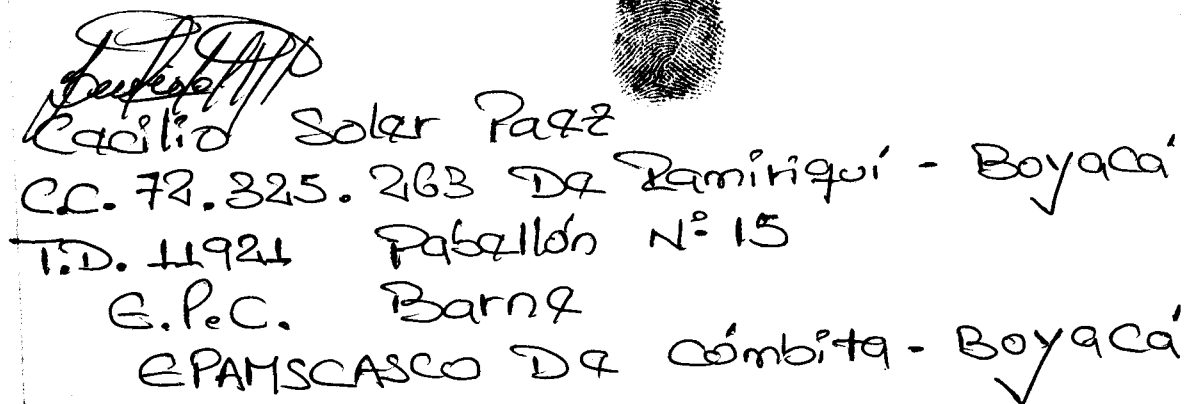 Cecilio Soler Paez
C.C. 72.325.263 De Ramiriquí - Boyacá
T.D. 11921 Pabellón Nº 15
E.P.C. Barne
EPAMSCASCO De Cómbita - Boyacá